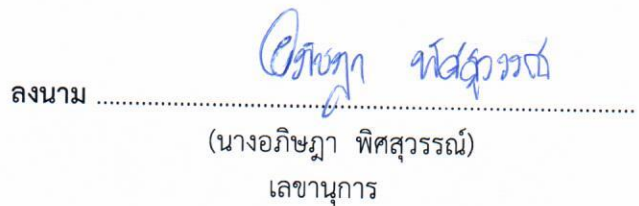 อภิษฎา พิศสุวรรณ์
ลงนาม ........................................................................
(นางอภิษฎา พิศสุวรรณ์)
เลขานุการ